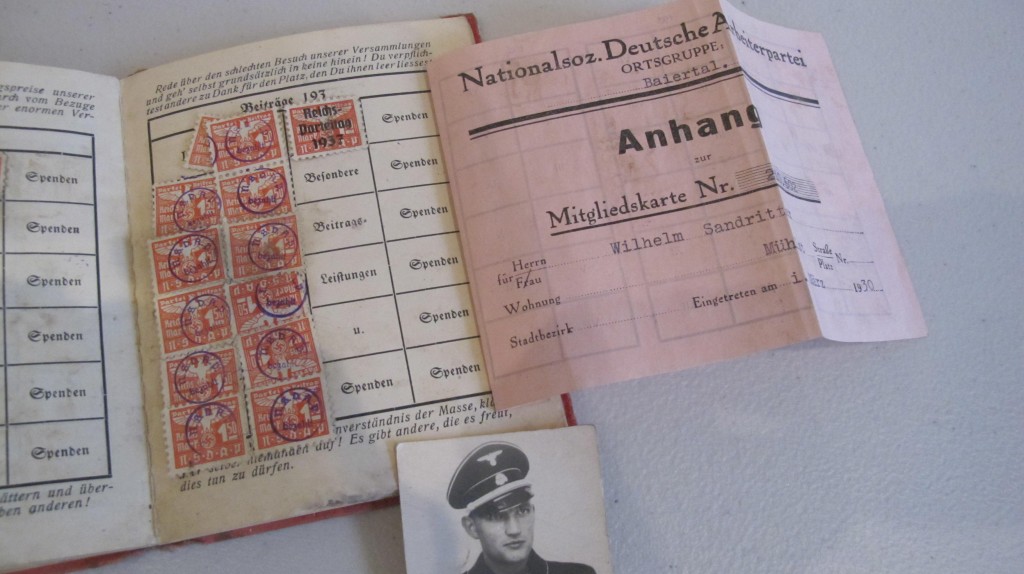 gspreise unserer
rch vom Bezuge
er enormen Ver-
Spenden
Spenden
Spenden
Spenden
Spenden
Spenden
ättern und über-
ben anderen!
Rede über den schlechten Besuch unserer Versammlungen
und geh' selbst grundsätzlich in keine hinein! Du verpflich-
test andere zu Dank für den Platz, den Du ihnen leer liessest
Beiträge 193
Reichs-
Parteitag
1933
Spenden
Besondere
Spenden
Beitrags-
Spenden
Leistungen
Spenden
u.
Spenden
Spenden
Spenden
N·S·D·A·P
nverständnis der Masse,
duf! Es gibt andere, die es freut,
dies tun zu dürfen.
Nationalsoz. Deutsche A
rbeiterpartei
ORTSGRUPPE,
Baiertal.
Anhang
zur
Mitgliedskarte Nr.
für Herrn
Frau
Wilhelm Sandritt
Wohnung
Müh
Straße
Platz
Nr.
Stadtbezirk
Eingetreten am
1930